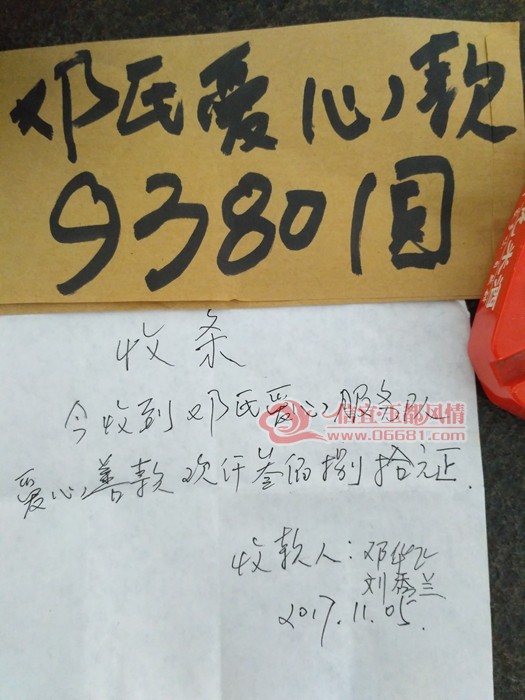 邓氏爱心款
9380圆
收条
今收到邓氏爱心服务队
信宜玉都风情
www.06681.com
爱心善款玖仟叁佰捌拾元正.
收款人:邓华飞
刘秀兰
2017.11.05.